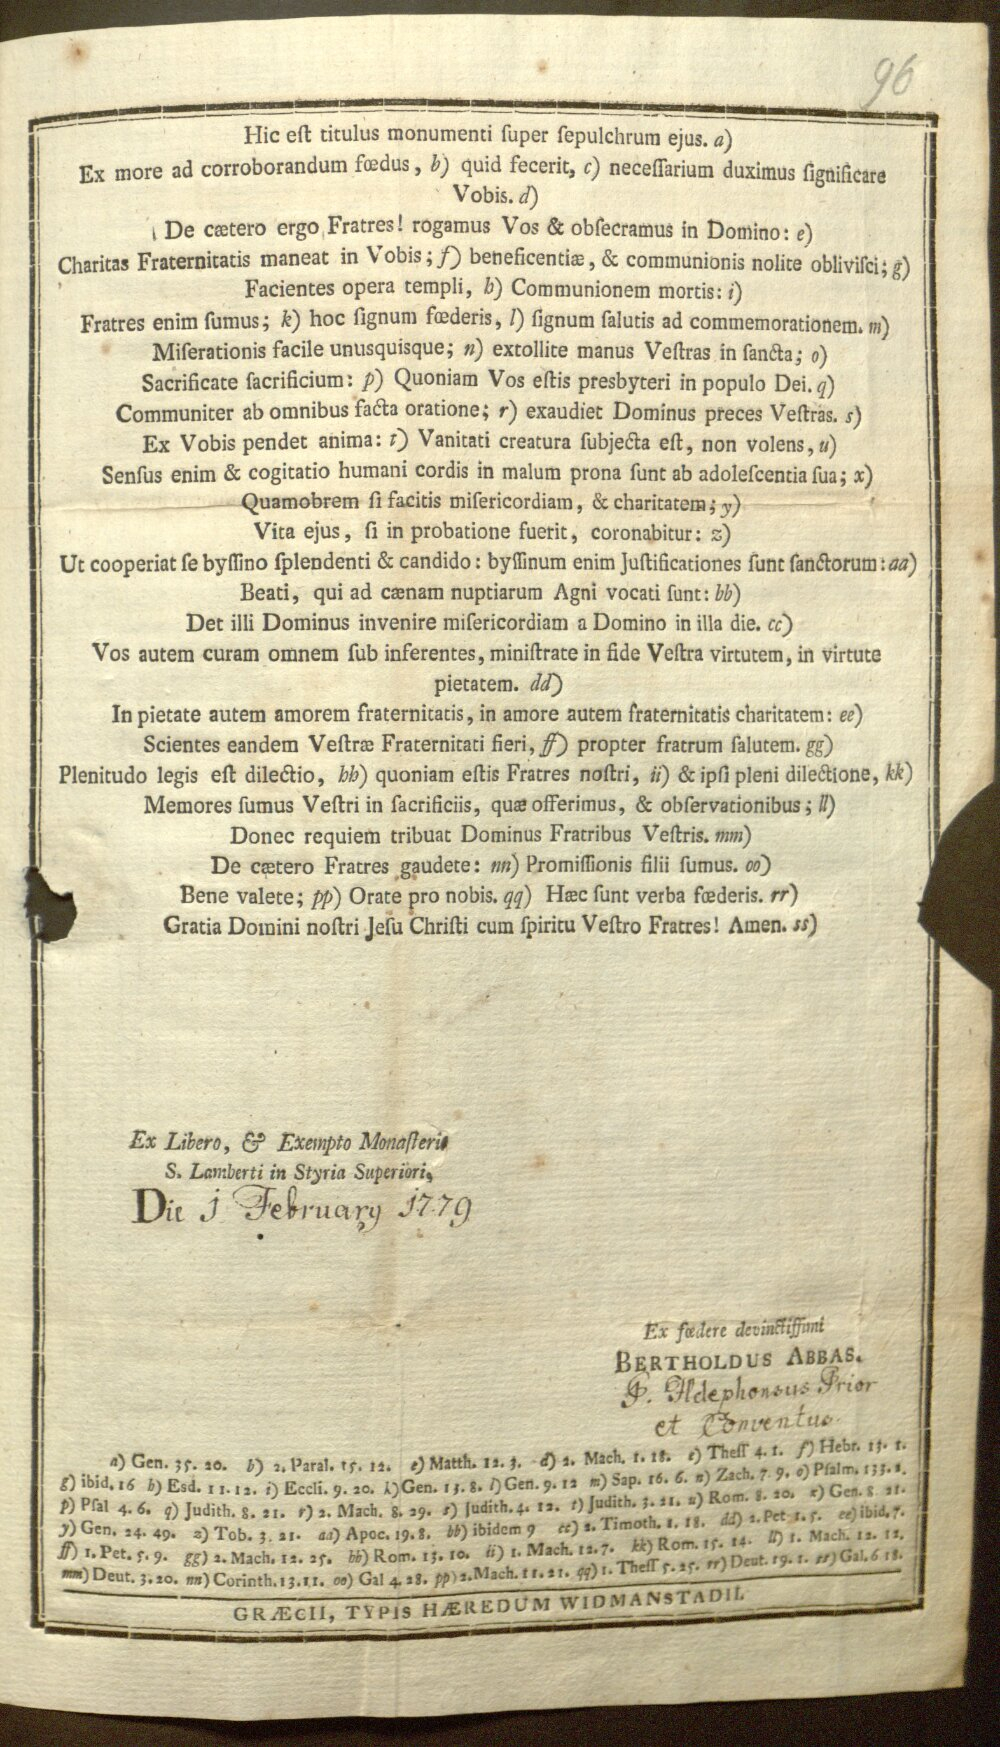 96
Hic est titulus monumenti ſuper ſepulchrum ejus. a)
Ex more ad corroborandum fœdus, b) quid fecerit, c) neceſſarium duximus ſignificare
Vobis. d)
De cætero ergo Fratres! rogamus Vos & obſecramus in Domino: e)
Charitas Fraternitatis maneat in Vobis; f) beneficentiæ, & communionis nolite obliviſci; g)
Facientes opera templi, h) Communionem mortis: i)
Fratres enim ſumus; k) hoc ſignum fœderis, l) ſignum ſalutis ad commemorationem. m)
Miſerationis facile unusquisque; n) extollite manus Veſtras in ſancta; o)
Sacrificate ſacrificium: p) Quoniam Vos eſtis presbyteri in populo Dei. q)
Communiter ab omnibus facta oratione; r) exaudiet Dominus preces Veſtras. s)
Ex Vobis pendet anima: t) Vanitati creatura ſubjecta eſt, non volens, u)
Senſus enim & cogitatio humani cordis in malum prona ſunt ab adoleſcentia ſua; x)
Quamobrem ſi facitis miſericordiam, & charitatem; y)
Vita ejus, ſi in probatione fuerit, coronabitur: z)
Ut cooperiat ſe byſſino ſplendenti & candido: byſſinum enim Juſtificationes ſunt ſanctorum: aa)
Beati, qui ad cænam nuptiarum Agni vocati ſunt: bb)
Det illi Dominus invenire miſericordiam a Domino in illa die. cc)
Vos autem curam omnem ſub inferentes, miniſtrate in fide Veſtra virtutem, in virtute
pietatem. dd)
In pietate autem amorem fraternitatis, in amore autem fraternitatis charitatem: ee)
Scientes eandem Veſtræ Fraternitati fieri, ff) propter fratrum ſalutem. gg)
Plenitudo legis eſt dilectio, hh) quoniam eſtis Fratres noſtri, ii) & ipſi pleni dilectione, kk)
Memores ſumus Veſtri in ſacrificiis, quæ offerimus, & obſervationibus; ll)
Donec requiem tribuat Dominus Fratribus Veſtris. mm)
De cætero Fratres gaudete: nn) Promiſſionis filii ſumus. oo)
Bene valete; pp) Orate pro nobis. qq) Hæc ſunt verba fœderis. rr)
Gratia Domini noſtri Jeſu Chriſti cum ſpiritu Veſtro Fratres! Amen. ss)
Ex Libero, & Exempto Monaſterio
S. Lamberti in Styria Superiori,
Die 1 February 1779
Ex fœdere devinctiſſimi
BERTHOLDUS ABBAS.
P. Ildephonsus Prior
et Conventus.
a) Gen. 35. 20. b) 2. Paral. 15. 12. c) Matth. 12. 3. d) 2. Mach. 1. 18. e) Theſſ 4. 1. f) Hebr. 13. 1.
g) ibid. 16 h) Esd. 11. 12. i) Eccli. 9. 20. k) Gen. 13. 8. l) Gen. 9. 12 m) Sap. 16. 6. n) Zach. 7. 9. o) Pſalm. 133. 2.
p) Pſal 4. 6. q) Judith. 8. 21. r) 2. Mach. 8. 29. s) Judith. 4. 12. t) Judith. 3. 21. u) Rom. 8. 20. x) Gen. 8. 21.
y) Gen. 24. 49. z) Tob. 3. 21. aa) Apoc. 19. 8. bb) ibidem 9 cc) 2. Timoth. 1. 18. dd) 2. Pet 1. 5. ee) ibid. 7.
ff) 1. Pet. 5. 9. gg) 2. Mach. 12. 25. hh) Rom. 13. 10. ii) 1. Mach. 12. 7. kk) Rom. 15. 14. ll) 1. Mach. 12. 12.
mm) Deut. 3. 20. nn) Corinth. 13. 11. oo) Gal 4. 28. pp) 2. Mach. 11. 21. qq) 1. Theſſ 5. 25. rr) Deut. 19. 1. ss) Gal. 6 18.
GRÆCII, TYPIS HÆREDUM WIDMANSTADII.